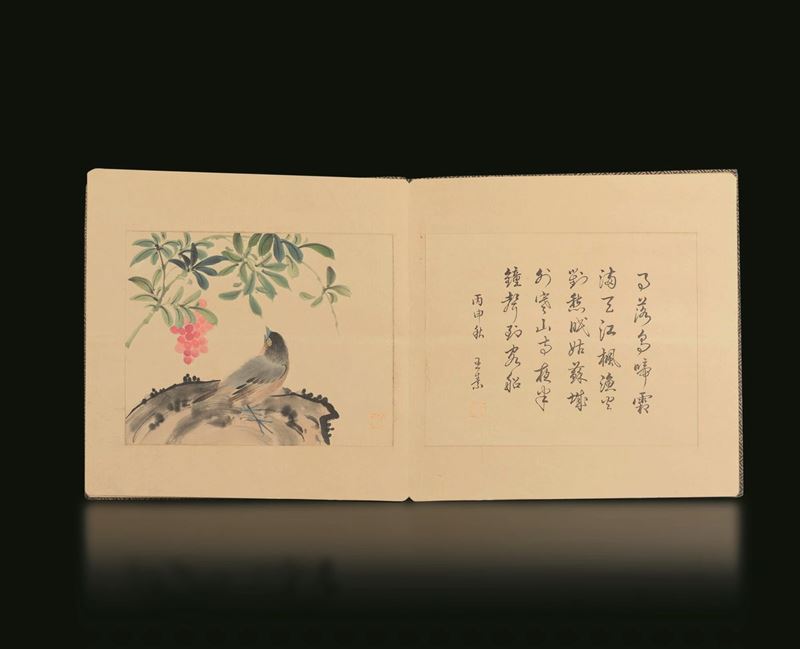 月落烏啼霜
滿天江楓漁火
對愁眠姑蘇城
外寒山寺夜半
鐘聲到客船
丙申秋 王